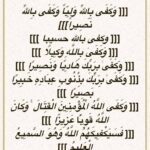 [[[ وَكَفَى بِاللَّهِ وَلِيًّا وَكَفَى بِاللَّهِ
نَصِيرًا]]]
[[[ وَكَفَى بِاللَّهِ حَسِيبًا ]]]
[[[ وَكَفَى بِاللَّهِ وَكِيلًا ]]]
[[[ وَكَفَى بِرَبِّكَ هَادِيًا وَنَصِيرًا]]]
[[[ وَكَفَى بِرَبِّكَ بِذُنُوبِ عِبَادِهِ خَبِيرًا
بَصِيرًا ]]]
[[[ وَكَفَى اللَّهُ الْمُؤْمِنِينَ الْقِتَالَ ۚ وَكَانَ
اللَّهُ قَوِيًّا عَزِيزًا ]]]
[[[ فَسَيَكْفِيكَهُمُ اللَّهُ وَهُوَ السَّمِيعُ
الْعَلِيمُ ]]]